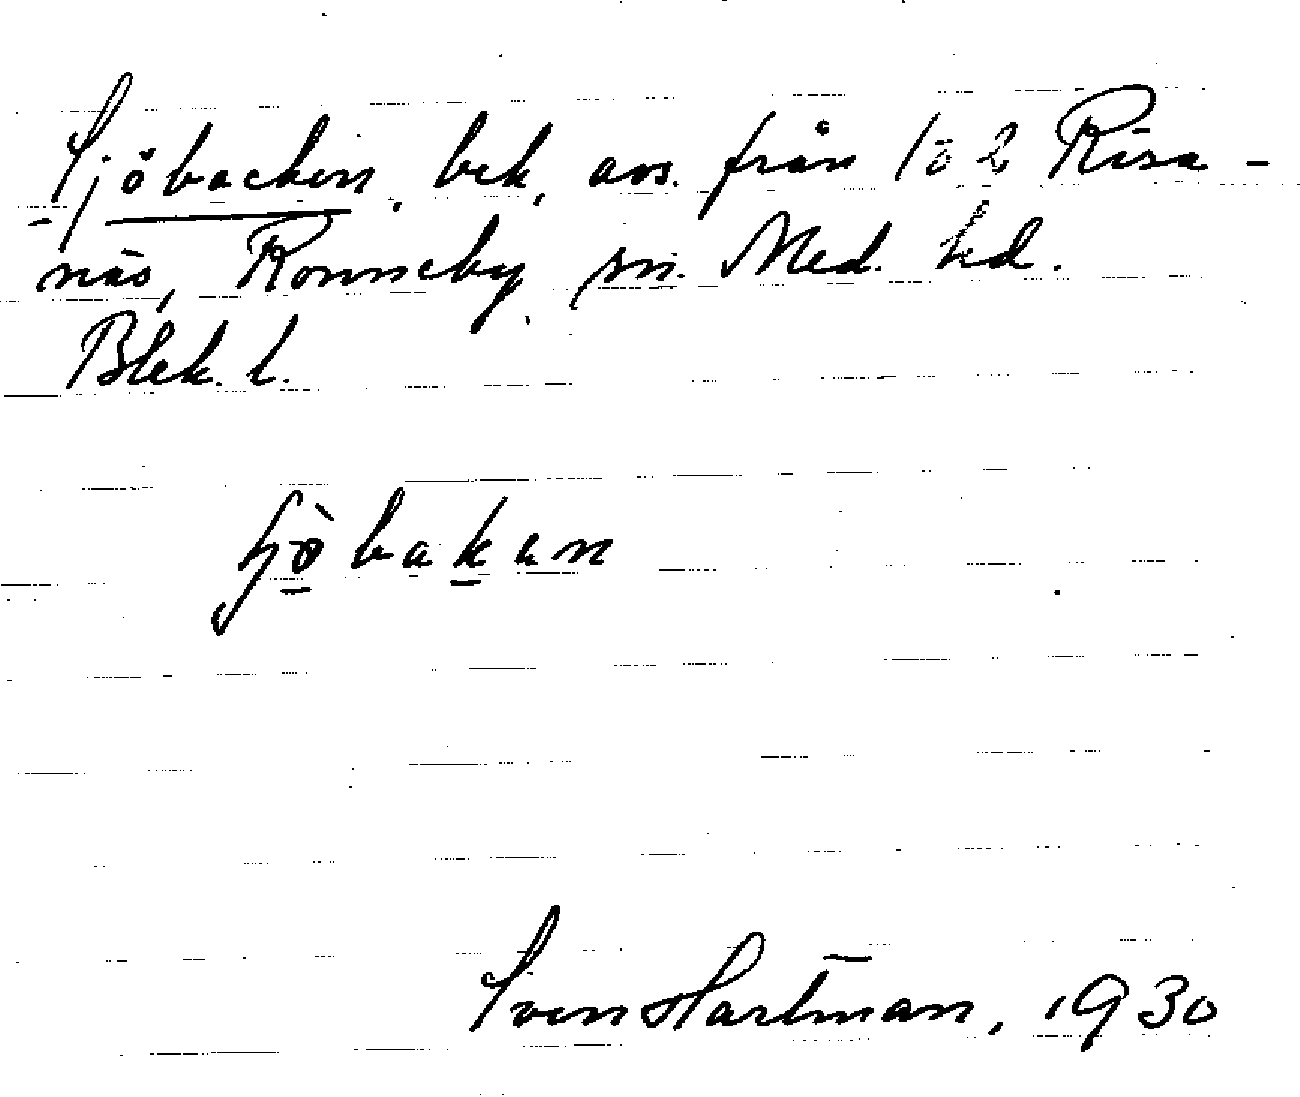 Sjöbacken, bek, avs. från 1 o 2 Risa-
näs, Ronneby sn. Med. hd.
Blek. l.
ʃö̀baken
Sven Hartman, 1930